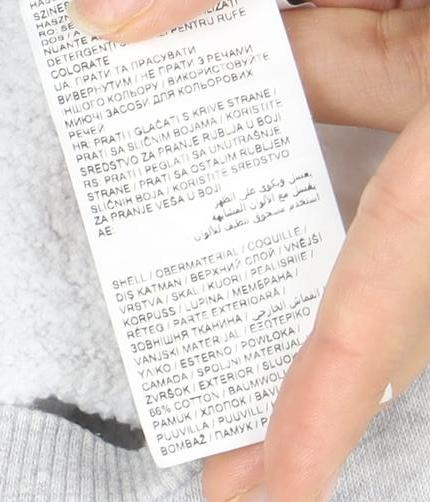 HASZN
RO: SE
DOS / A
NUANTE A
PENTRU RUFE
DETERGENTI
COLORATE
UA: ПРАТИ ТА ПРАСУВАТИ
ВИВЕРНУТИМ / НЕ ПРАТИ З РЕЧАМИ
ІНШОГО КОЛЬОРУ / ВИКОРИСТОВУЙТЕ
МИЮЧІ ЗАСОБИ ДЛЯ КОЛЬОРОВИХ
РЕЧЕЙ
HR: PRATI I GLAČATI S KRIVE STRANE /
PRATI SA SLIČNIM BOJAMA / KORISTITE
SREDSTVO ZA PRANJE RUBLJA U BOJI
RS: PRATI I PEGLATI SA UNUTRAŠNJE
STRANE / PRATI SA OSTALIM RUBLJEM
SLIČNIH BOJA / KORISTITE SREDSTVO
ZA PRANJE VEŠA U BOJI
AE:
يغسل ويكوى على الظهر
يغسل مع الألوان المشابهة
استخدم مسحوق تنظيف للألوان
SHELL / OBERMATERIAL / COQUILLE /
DIŞ KATMAN / ВЕРХНИЙ СЛОЙ / VNĚJŠÍ
VRSTVA / SKAL / KUORI / PEALISRIIE /
KORPUSS / LUPINA / МЕМБРАНА /
RÉTEG / PARTE EXTERIOARĂ /
ЗОВНІШНЯ ТКАНИНА / القماش الخارجي /
VANJSKI MATERIJAL / ΕΞΩΤΕΡΙΚΟ
ΥΛΙΚΟ / ESTERNO / POWŁOKA /
CAMADA / SPOLJNI MATERIJAL
ZVRŠOK / EXTERIOR / SLUO
66% COTTON / BAUMWOL
PAMUK / ХЛОПОК / BAV
PUUVILLA / PUUVILL /
BOMBAŽ / ПАМУК / P